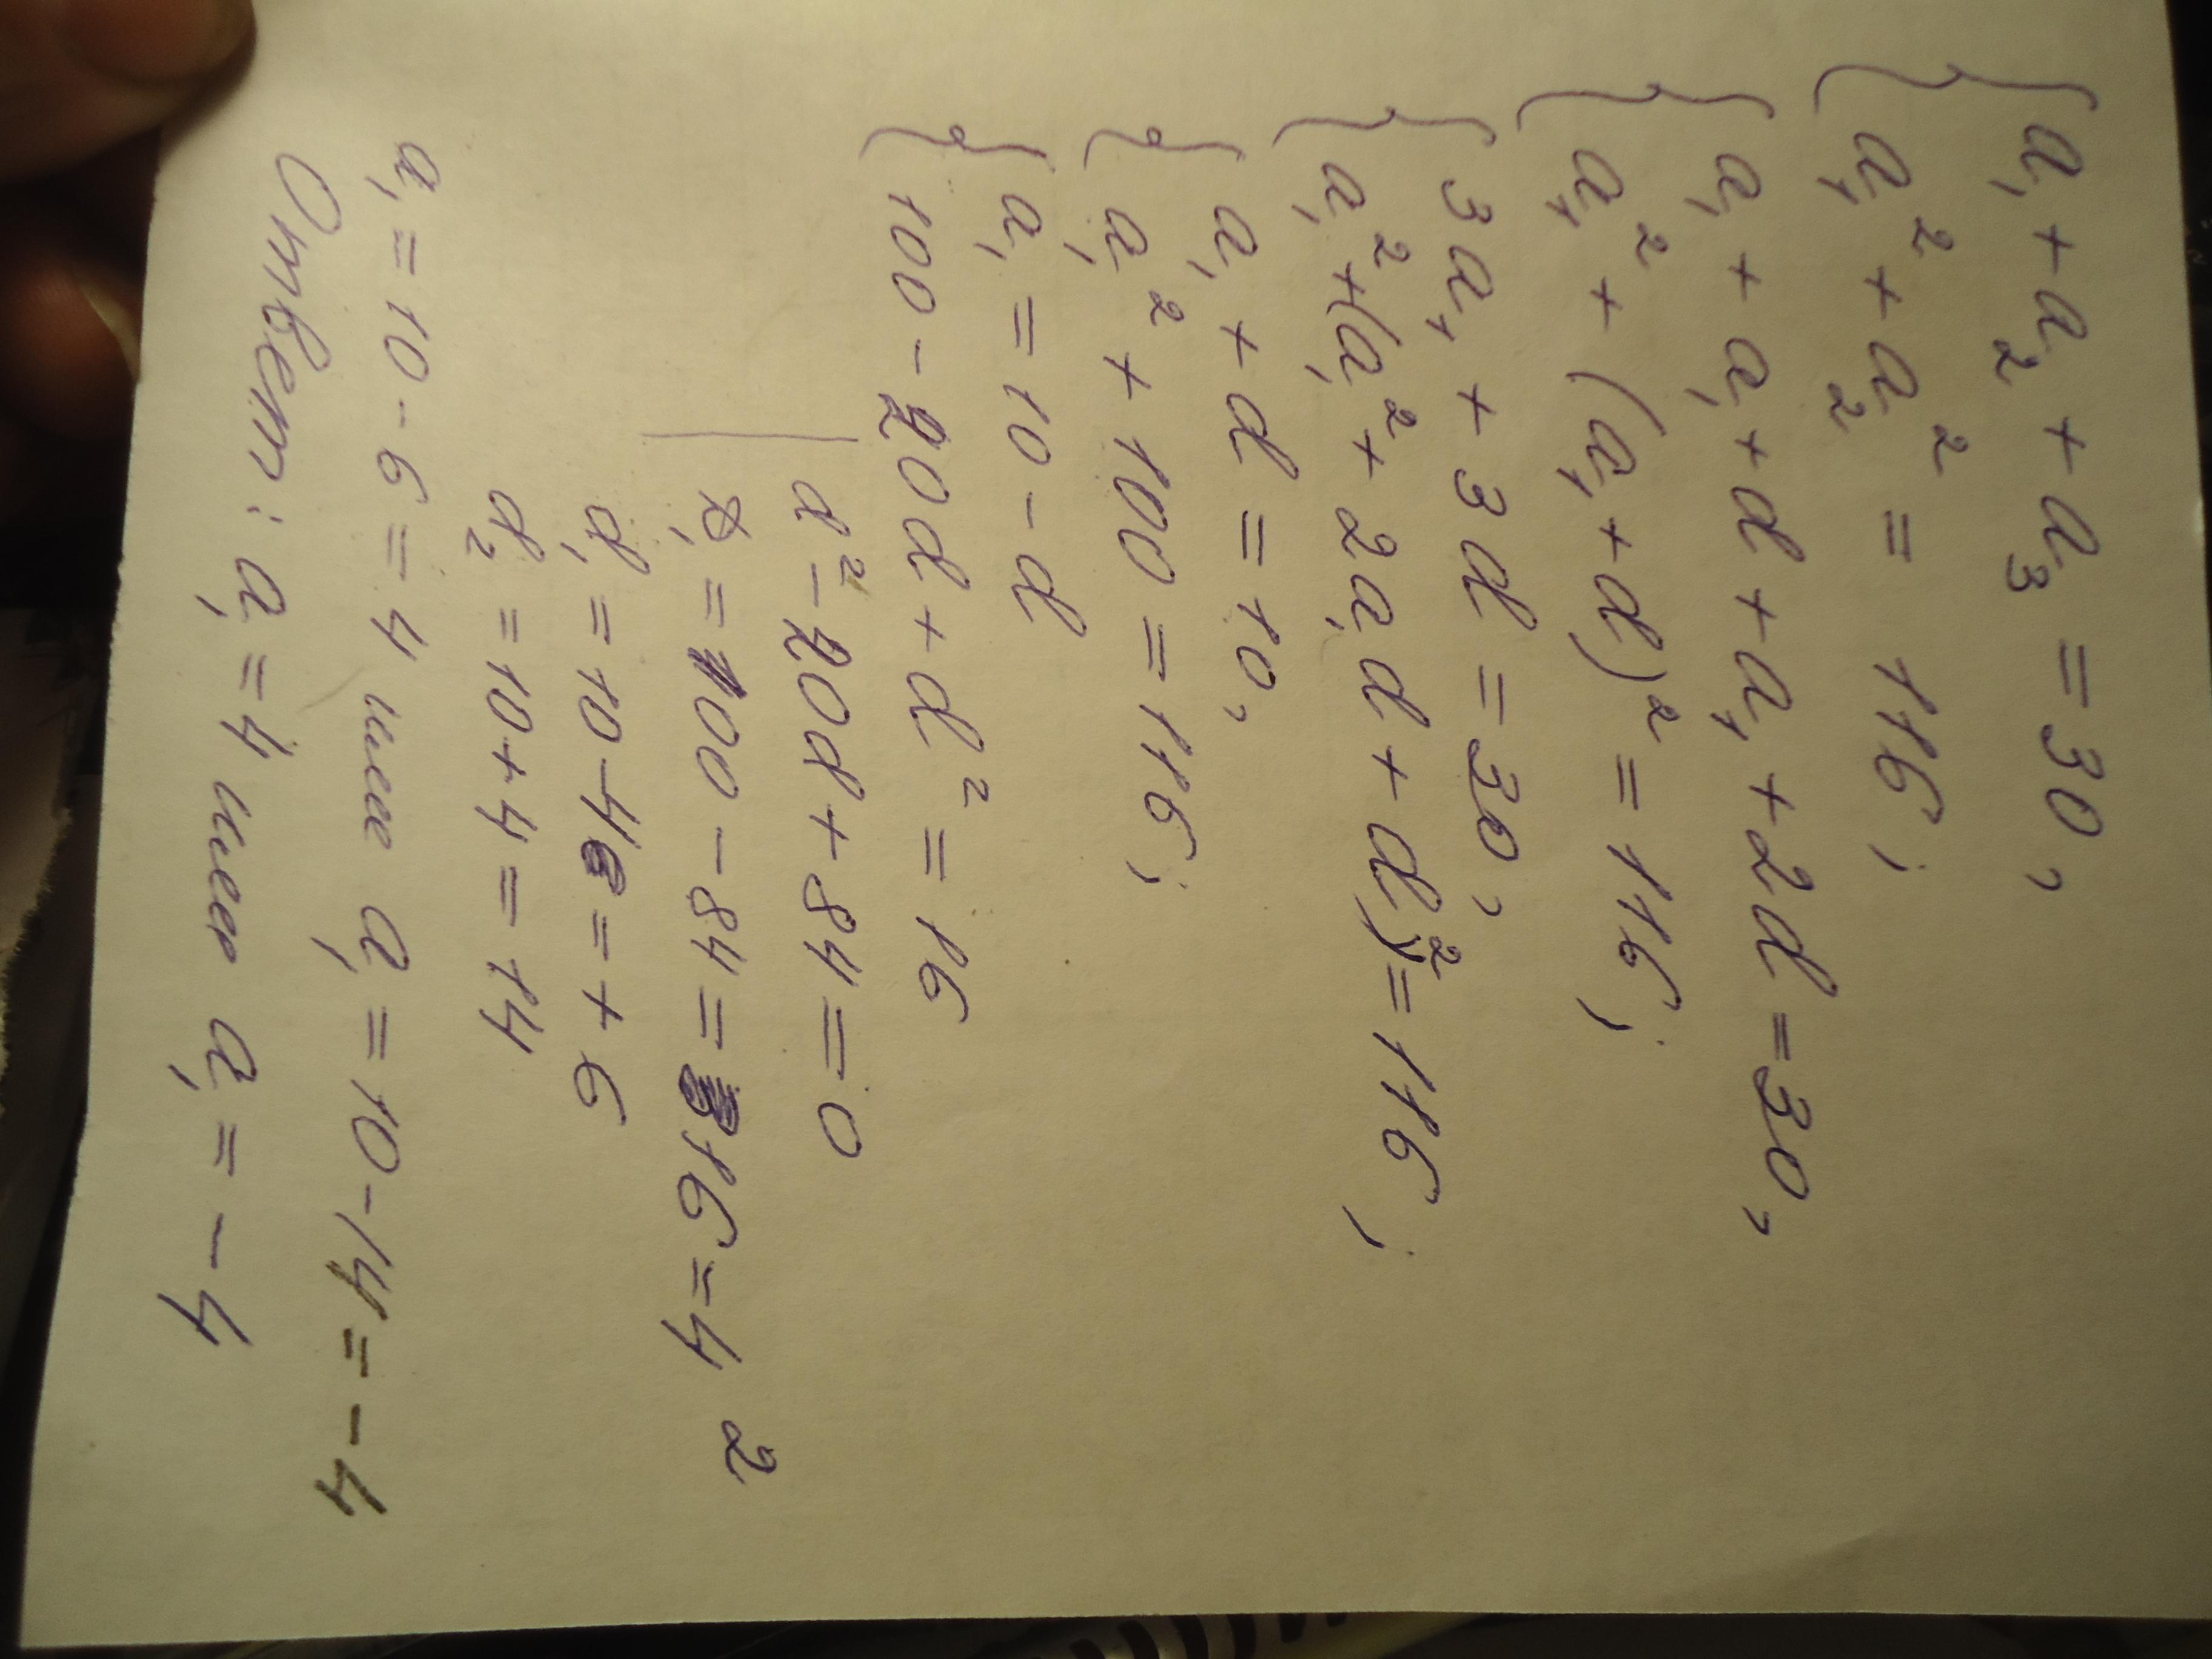 a₁ + a₂ + a₃ = 30,
a₁² + a₂² = 116;
a₁ + a₁ + d + a₁ + 2d = 30,
a₁² + (a₁ + d)² = 116;
3a₁ + 3d = 30,
a₁² + (a₁² + 2a₁d + d)² = 116;
a₁ + d = 10,
a₁² + 100 = 116;
a₁ = 10 - d
100 - 20d + d² = 16
d² - 20d + 84 = 0
D₁ = 100 - 84 = 16 = 4²
d₁ = 10 - 4 = +6
d₂ = 10 + 4 = 14
a₁ = 10 - 6 = 4 или a₁ = 10 - 14 = -4
Ответ: a₁ = 4 или a₁ = -4